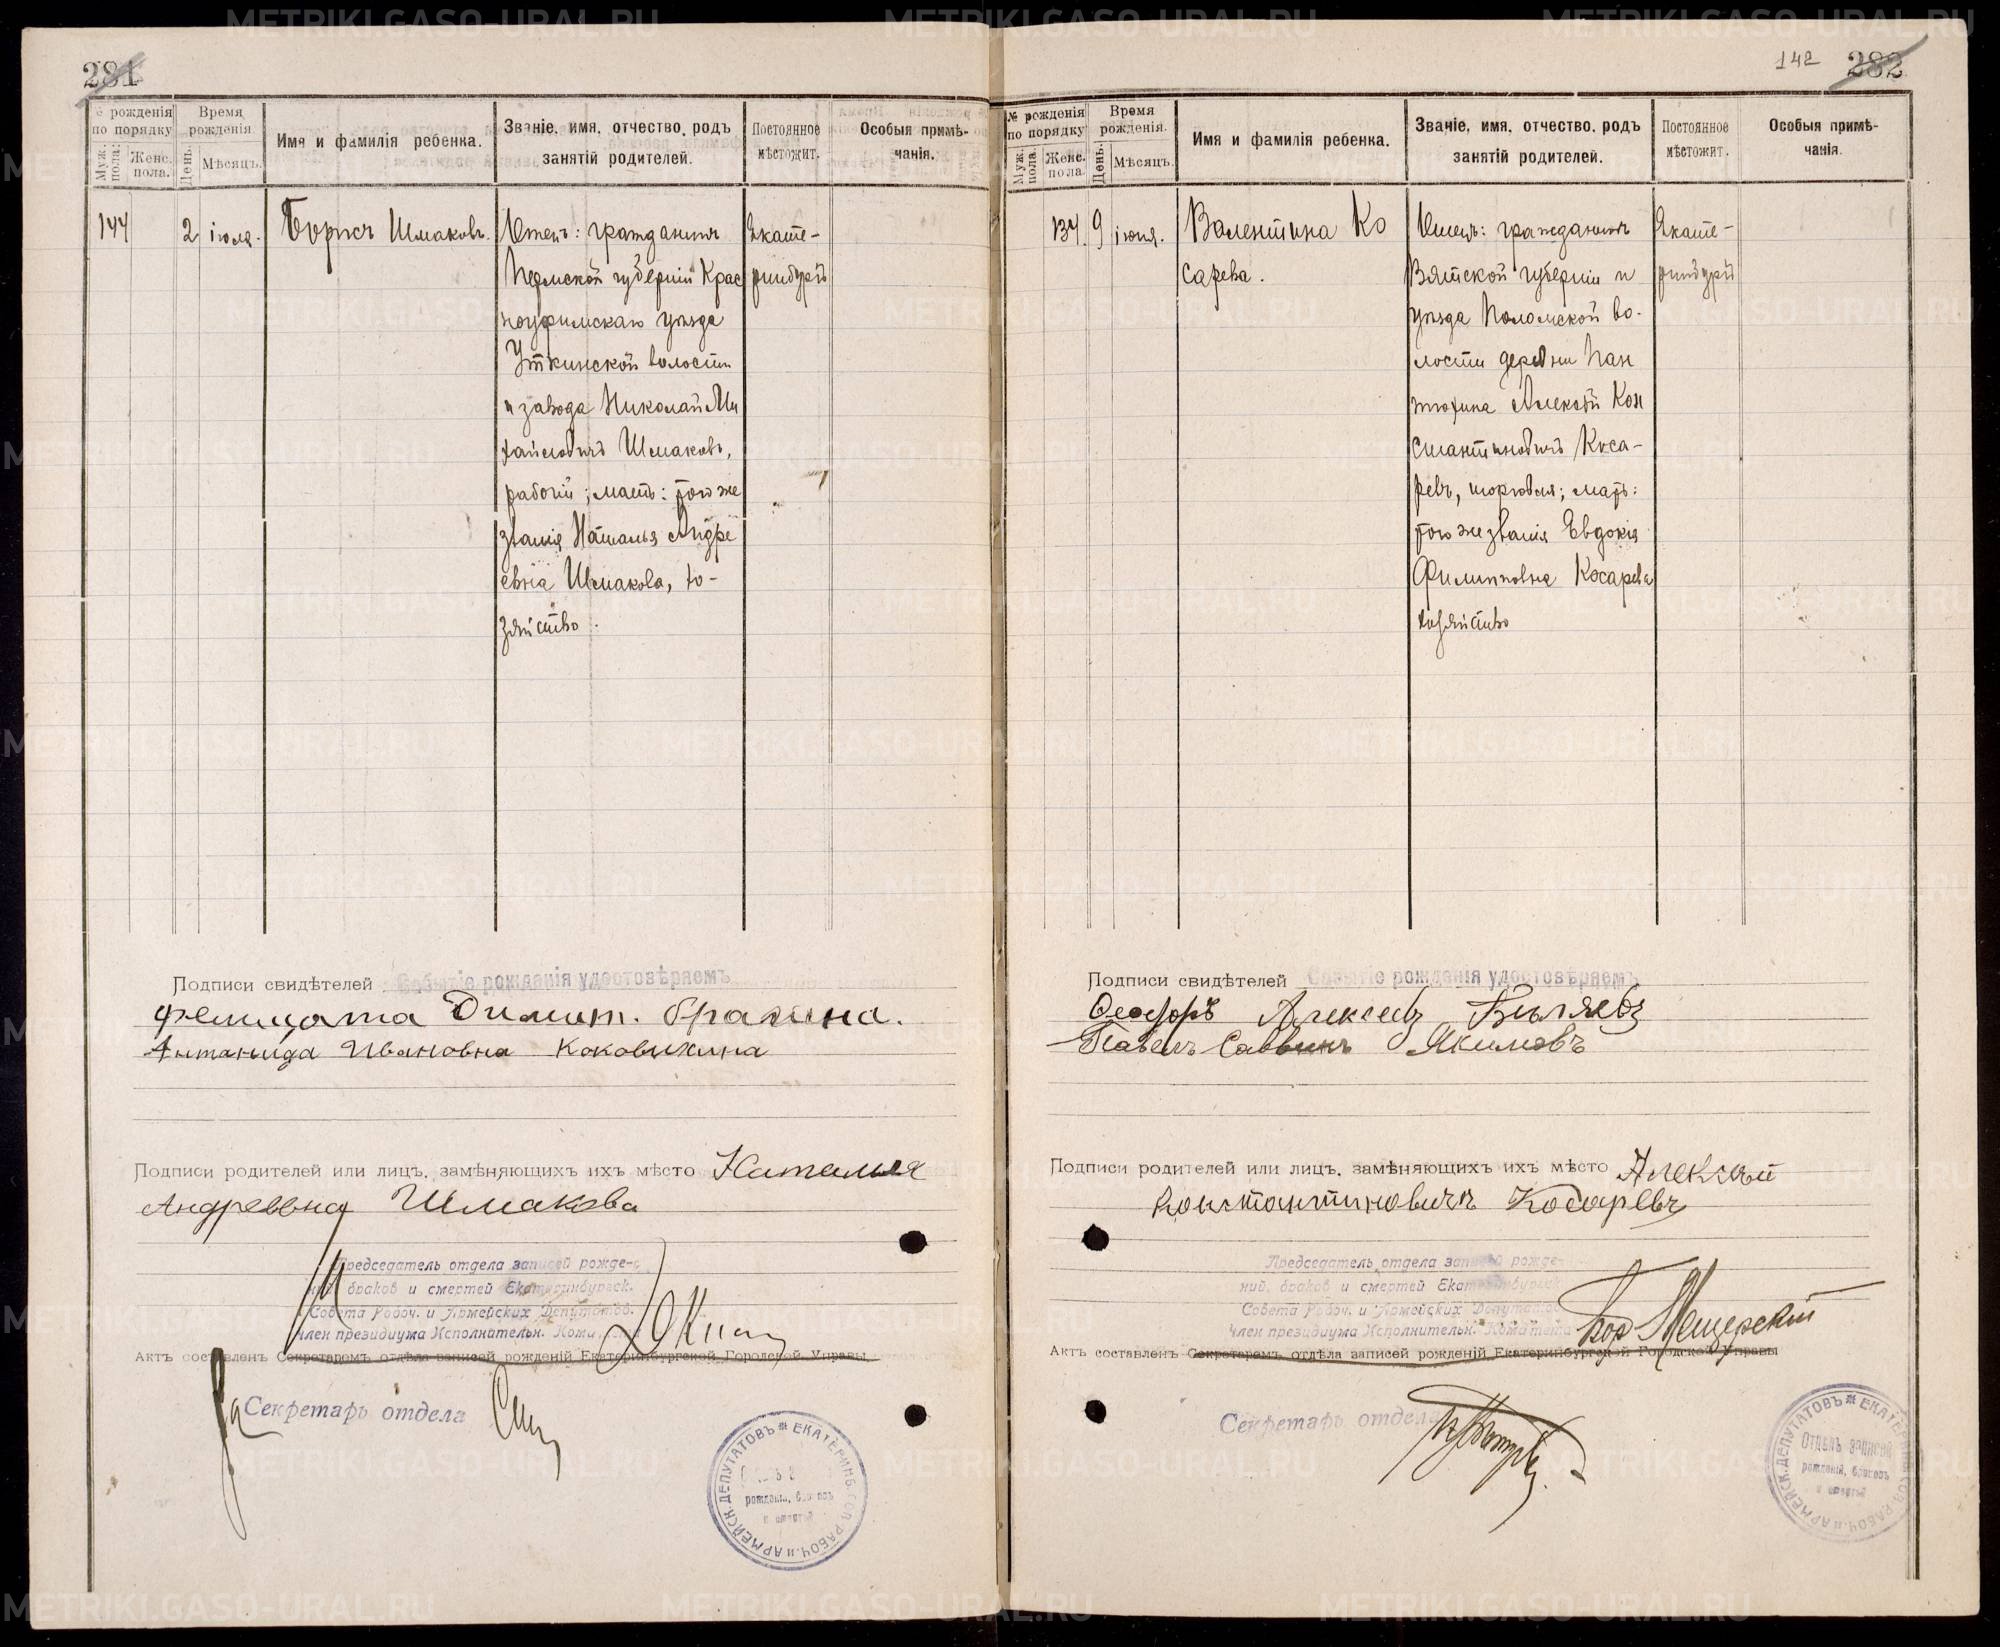 281
№ рожденія по порядку
Муж. пола.
Женс. пола.
Время рожденія.
День.
Мѣсяцъ.
Имя и фамилія ребенка.
Званіе, имя, отчество, родъ занятій родителей.
Постоянное мѣстожит.
Особыя примѣчанія.
144
2
іюля.
Борисъ Шмаковъ.
Отецъ: гражданинъ
Пермской губерніи Крас
ноуфимскаго уѣзда
Уткинской волости
и завода Николай Ми
хайловичъ Шмаковъ,
рабочій; мать: того же
званія Наталья Андре
евна Шмакова, хо-
зяйство.
Екате-
ринбургъ
Подписи свидѣтелей Событіе рожденія удостовѣряемъ
Фелицата Димит. Брагина.
Антанида Ивановна Коковихина
Подписи родителей или лицъ, замѣняющихъ ихъ мѣсто Наталья
Андреевна Шмакова
Председатель отдела записей рожде-
ний, браков и смертей Екатеринбургск.
Совета Рабоч. и Армейских Депутатов.
Член президиума Исполнительн. Комитета
Актъ составленъ Секретаремъ отдѣла записей рожденій Екатеринбургской Городской Управы
За Секретарь отдела
ЕКАТЕРИНБ. ГОР. РАБОЧ. и АРМЕЙСК. ДЕПУТАТОВЪ
рожденій, браковъ
и смертей
142
282
№ рожденія по порядку
Муж. пола.
Женс. пола
Время рожденія.
День.
Мѣсяцъ.
Имя и фамилія ребенка.
Званіе, имя, отчество, родъ занятій родителей.
Постоянное мѣстожит.
Особыя примѣчанія.
134
9
іюня.
Валентина Ко
сарева.
Отецъ: гражданинъ
Вятской губерніи и
уѣзда Поломской во-
лости деревни Пан
тюхина Алексѣй Кон
стантиновичъ Коса-
ревъ, торговля; мать:
того же званія Евдокія
Филипповна Косарева
хозяйство
Екате-
ринбургъ
Подписи свидѣтелей Событіе рожденія удостовѣряемъ
Феодоръ Алексеевъ Бѣляевъ
Павелъ Саввинъ Якимовъ
Подписи родителей или лицъ, замѣняющихъ ихъ мѣсто Алексѣй
Константиновичъ Косаревъ
Председатель отдела записей рожде-
ний, браков и смертей Екатеринбургск
Совета Рабоч. и Армейских Депутатов
Член президиума Исполнительн. Комитета
Мещерский
Актъ составленъ Секретаремъ отдѣла записей рожденій Екатеринбургской Городской Управы
Секретарь отдела
ЕКАТЕРИНБ. ГОР. РАБОЧ. и АРМЕЙСК. ДЕПУТАТОВЪ
Отдѣлъ записей
рожденій, браковъ
и смертей
METRIKI.GASO-URAL.RU